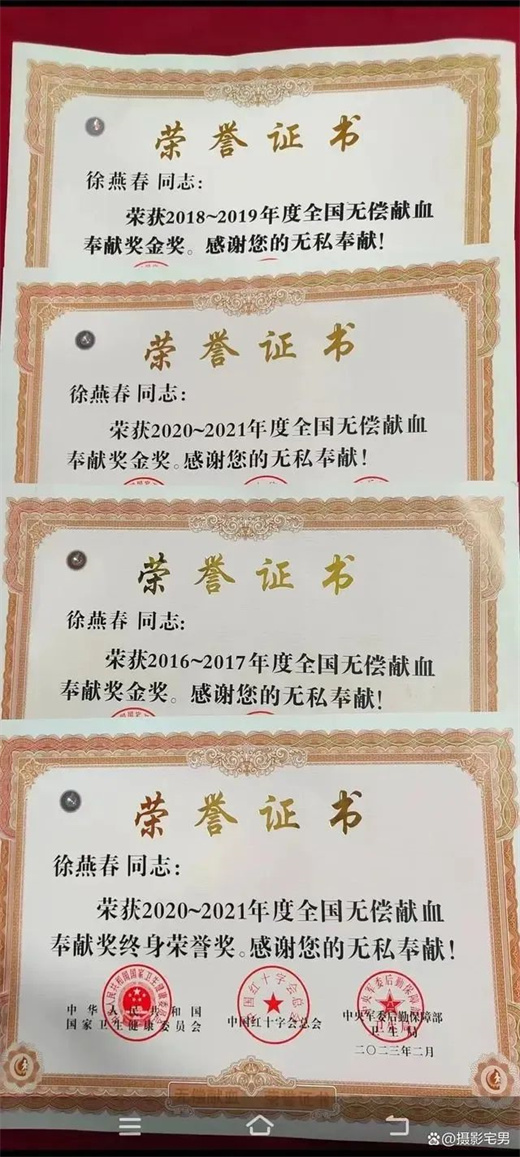 荣誉证书
徐燕春 同志：
荣获2018~2019年度全国无偿献血
奉献奖金奖。感谢您的无私奉献！
荣誉证书
徐燕春 同志：
荣获2020~2021年度全国无偿献血
奉献奖金奖。感谢您的无私奉献！
荣誉证书
徐燕春 同志：
荣获2016~2017年度全国无偿献血
奉献奖金奖。感谢您的无私奉献！
荣誉证书
徐燕春 同志：
荣获2020~2021年度全国无偿献血
奉献奖终身荣誉奖。感谢您的无私奉献！
中华人民共和国
国家卫生健康委员会
中国红十字会总会
中央军委后勤保障部
卫生局
二〇二三年二月
@摄影宅男